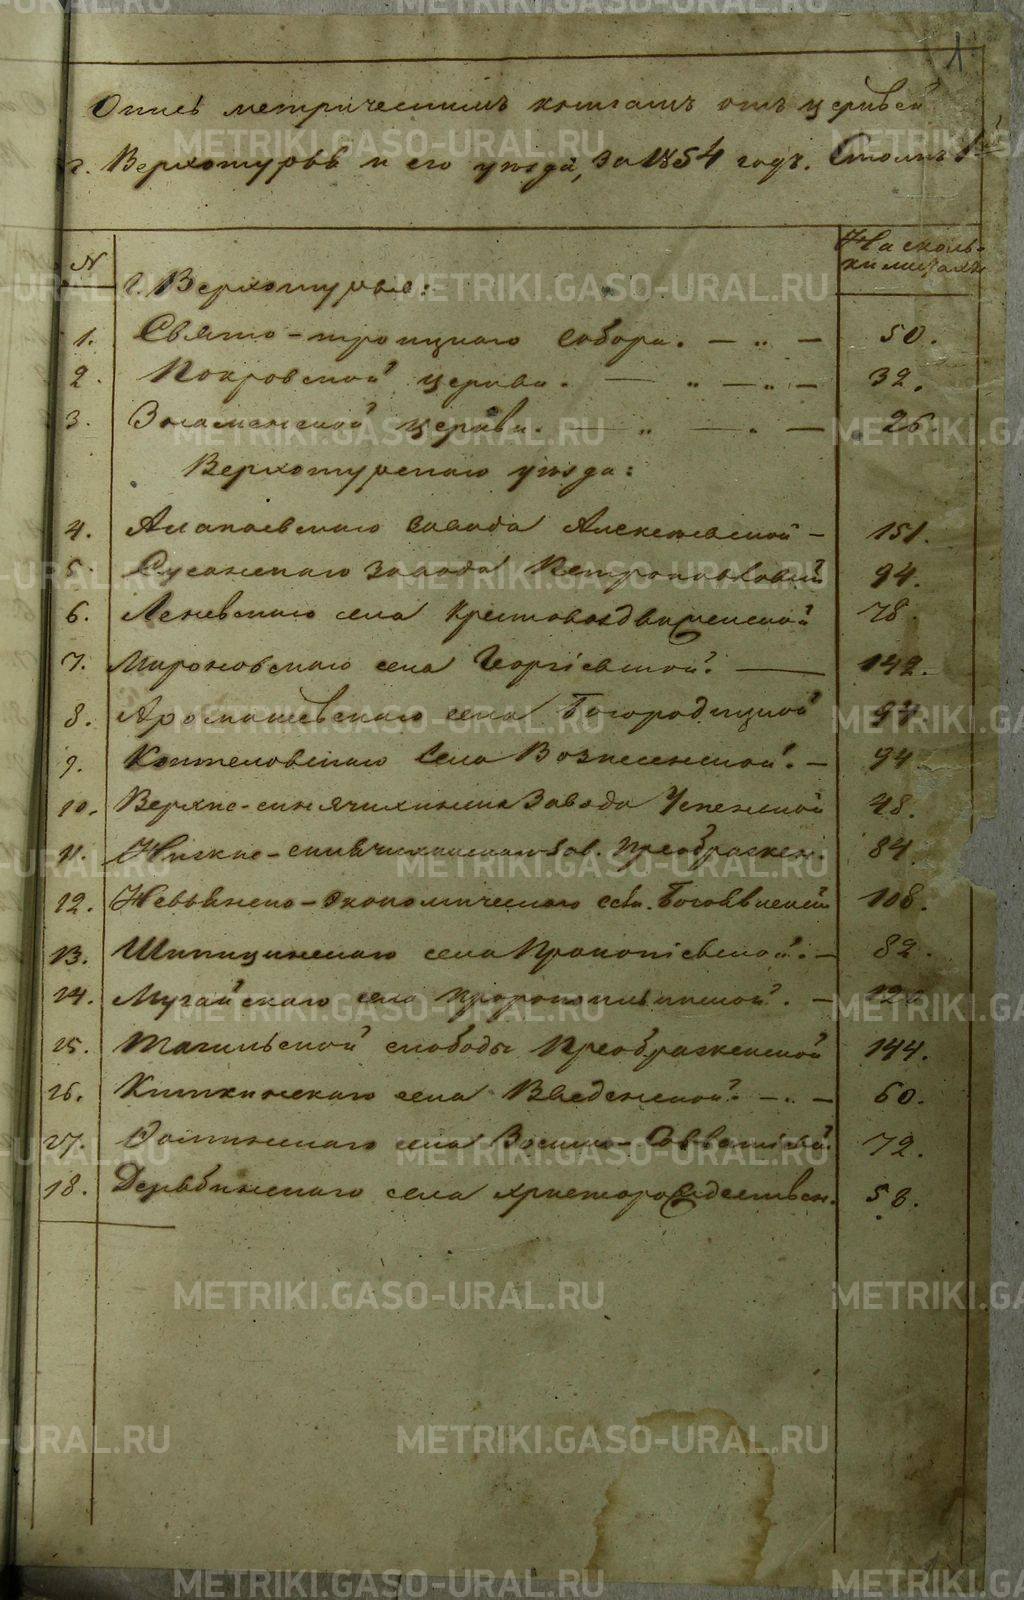 1
Опись метрическимъ книгамъ отъ церквей
г. Верхотурья и его уѣзда, за 1854 годъ. Столпъ 1й
N
На сколь-
ки листахъ
г. Верхотурья:
1. Свято-троицкаго собора. — „ — 50.
2. Покровской церкви. — „ — „ — 32.
3. Знаменской церкви. — „ — . — 26.
Верхотурскаго уѣзда:
4. Алапаевскаго завода Алексѣевской — 151.
5. Сусанскаго завода Петропавловской 94.
6. Леневскаго села Крестовоздвиженской 78.
7. Мироновскаго села Георгіевской. — 142.
8. Аромашевскаго села Богородицкой 94.
9. Коптеловскаго села Вознесенской. — 94
10. Верхне-синячихинска завода Успенской 48.
11. Нижне-синячихинскаго зав. Преображен. 84.
12. Невьянско-Экономическаго села Богоявленской 108.
13. Шипицинскаго села Прокопіевской. — 82.
14. Мугайскаго села Пророкоильинской. — 126
15. Тагильской слободы Преображенской 144.
16. Киткинскаго села Введенской. — . — 60.
17. села Зосимо-Савватіевск. 72.
18. Дерябинскаго села христорождествен. 58.
METRIKI.GASO-URAL.RU